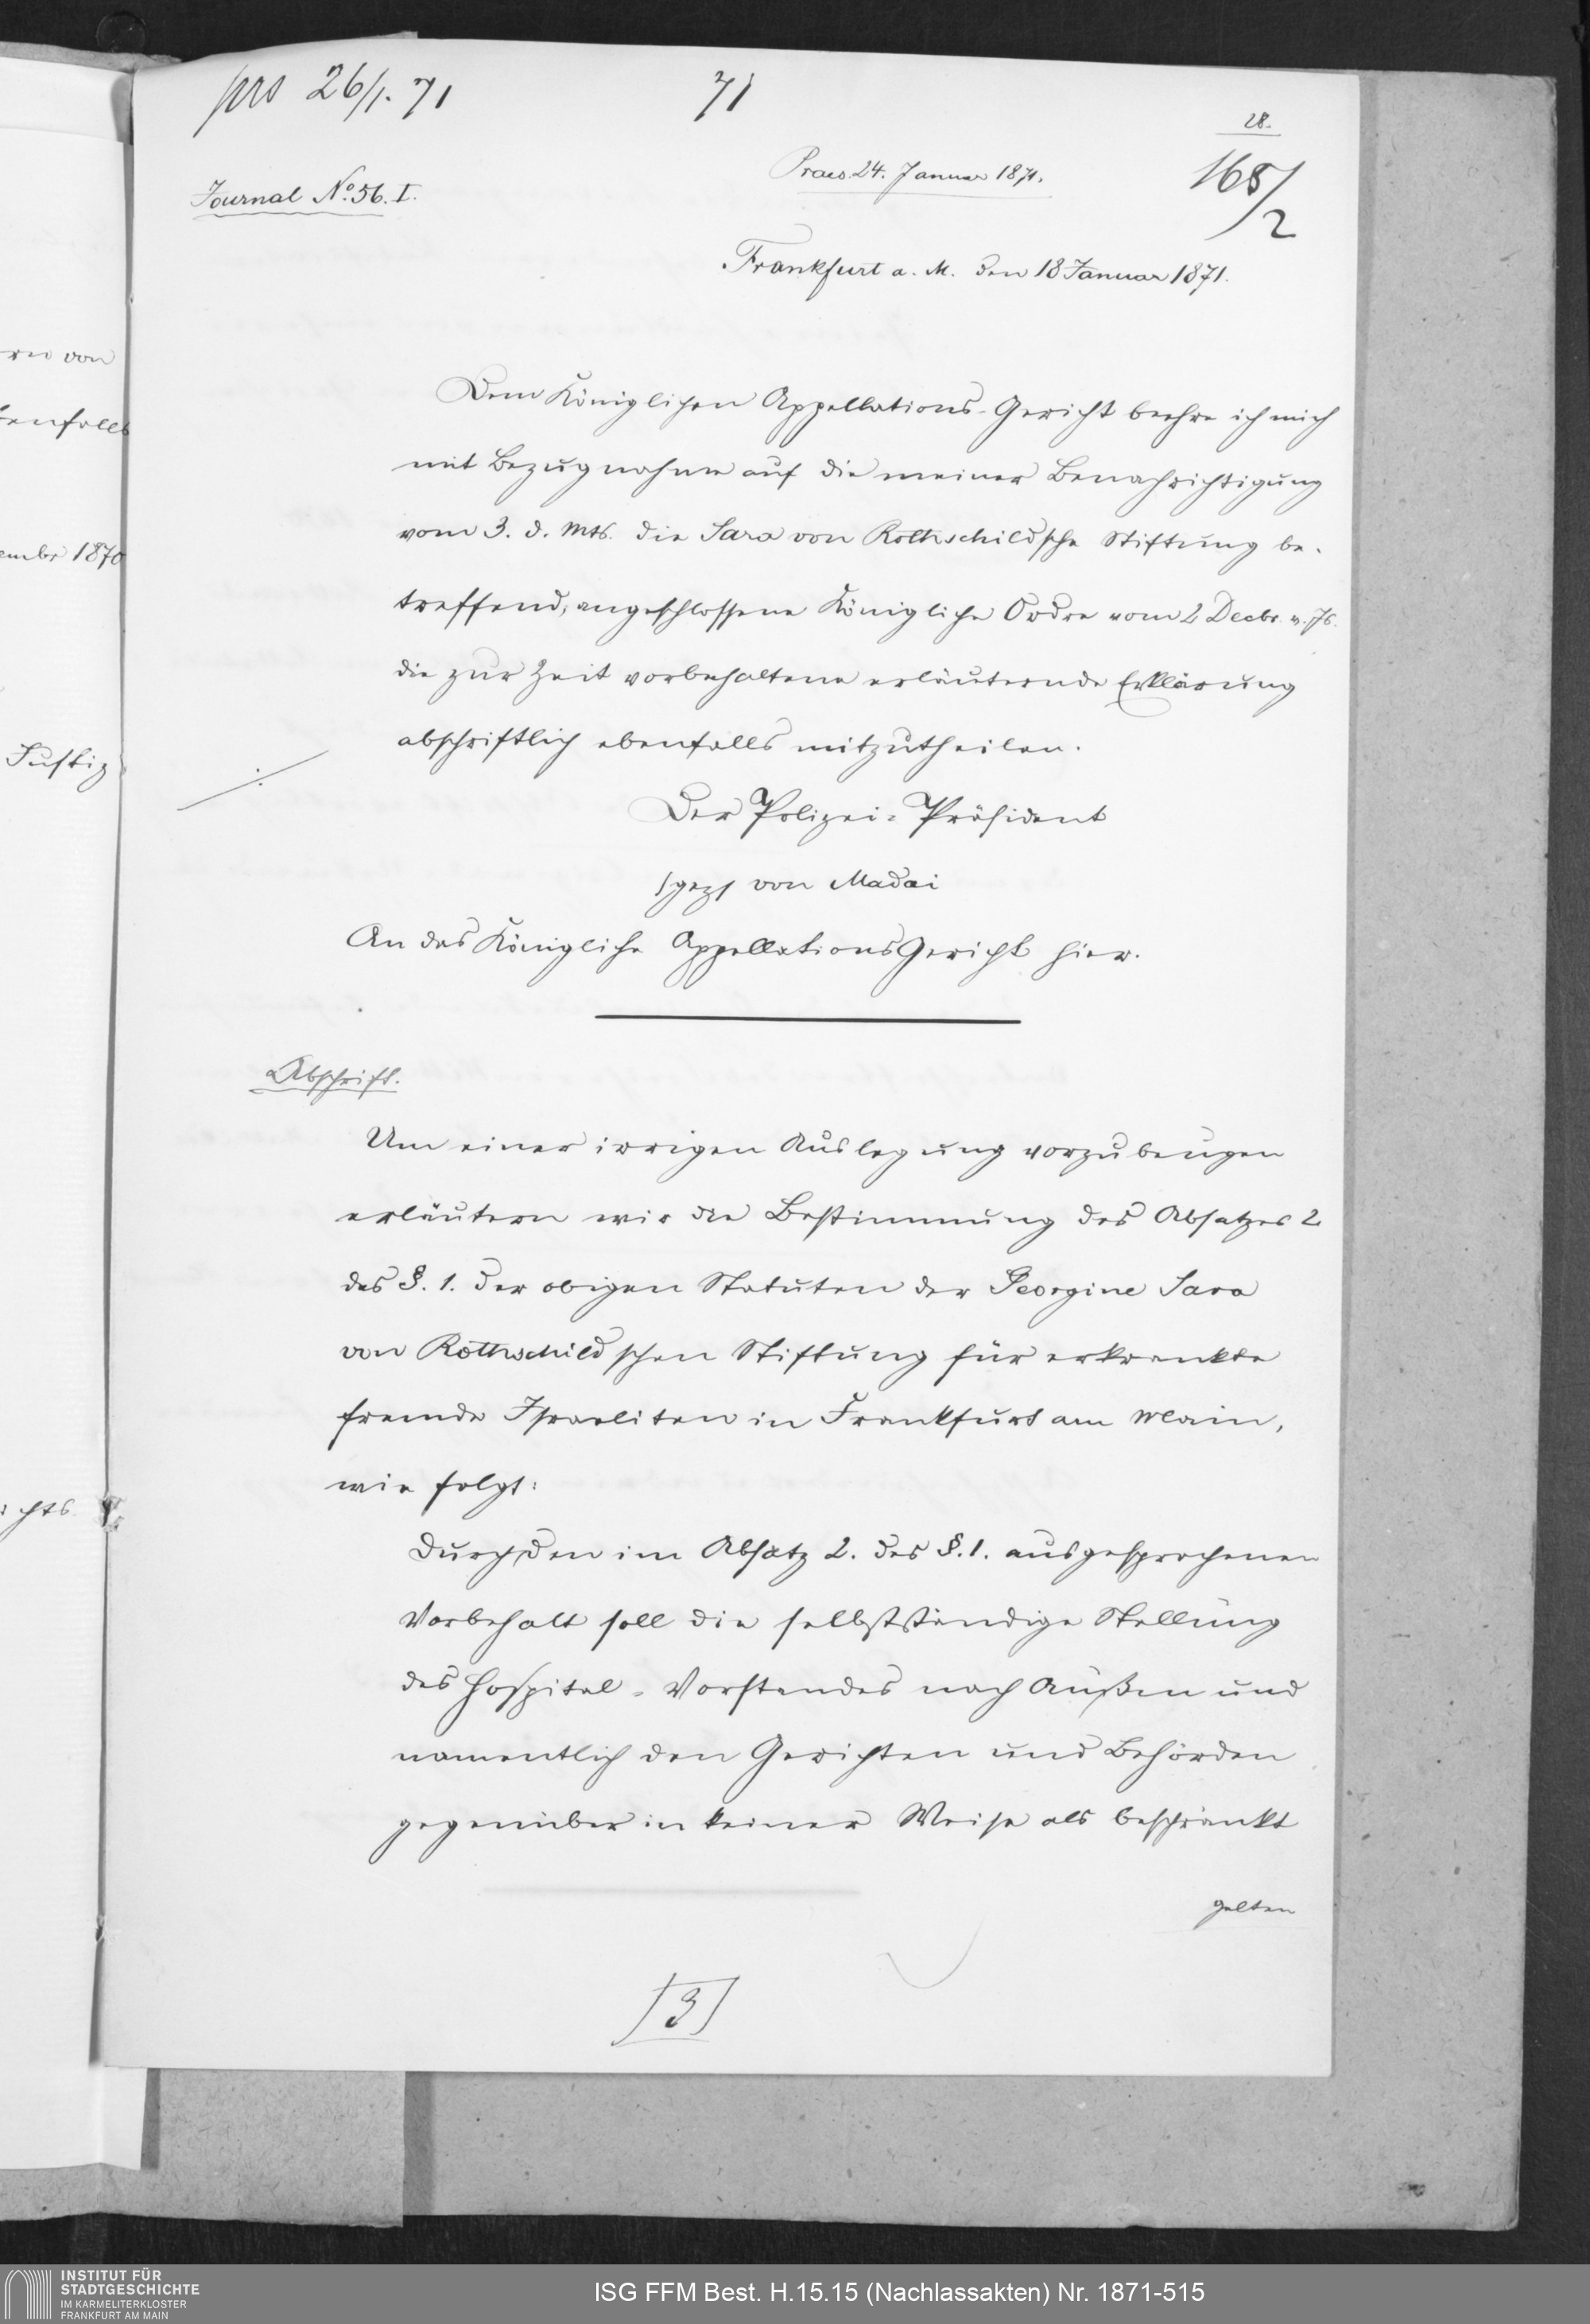 prs 26/1. 71
71
28.
Praes. 24. Januar 1871.
168/2
Journal No. 56. I.
Frankfurt a. M. den 18 Januar 1871.
Dem Königlichen Appellations-Gericht beehre ich mich
mit Bezugnahme auf die meiner Benachrichtigung
vom 3. d. Mts. die Sara von Rothschildsche Stiftung be-
treffend, angeschlossene Königliche Ordre vom 2 Decbr. v. Js.
die zur Zeit vorbehaltene erläuternde Erklärung
abschriftlich ebenfalls mitzutheilen.
Der Polizei-Präsident
/gez/ von Madai
An das Königliche Appellations Gericht hier.
Abschrift.
Um einer irrigen Auslegung vorzubeugen
erläutern wir die Bestimmung des Absatzes 2
des §. 1. der obigen Statuten der Georgine Sara
von Rothschild'schen Stiftung für erkrankte
fremde Israeliten in Frankfurt am Main,
wie folgt:
Durch den im Absatz 2. des §. 1. ausgesprochenen
Vorbehalt soll die selbstständige Stellung
des Hospital-Vorstandes nach Außen und
namentlich den Gerichten und Behörden
gegenüber in keiner Weise als beschränkt
gelten
[3]
rn von
benfalls
embr 1870
Justiz
ichts
INSTITUT FÜR
STADTGESCHICHTE
IM KARMELITERKLOSTER
FRANKFURT AM MAIN
ISG FFM Best. H.15.15 (Nachlassakten) Nr. 1871-515